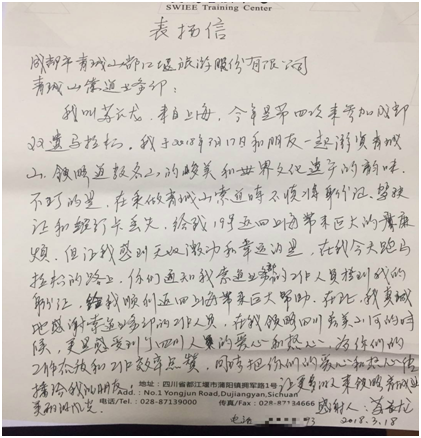 SWIEE Training Center
表扬信
成都市青城山都江堰旅游股份有限公司
青城山索道业务部:
我叫苏云龙,来自上海,今年是第四次来参加成都
双遗马拉松。我于2018年3月17日和朋友一起游览青城
山,领略道教名山的峻美和世界文化遗产的韵味。
不巧的是,在乘做青城山索道时不慎将身份证、驾驶
证和银行卡丢失,给我19号返回上海带来巨大的麻
烦。但让我感到无比激动和幸运的是,在我今天跑马
拉松的路上,你们通知我索道业务部的工作人员捡到我的
身份证,给我顺利返回上海带来巨大帮助。在此,我真诚
地感谢索道业务部的工作人员,在我领略四川美美山河的时
候,更是感受到了四川人的爱心和热心,为你们的
工作态度和工作效率点赞,同时把你们的爱心和热心传
播给我的朋友,让更多的人来领略青城山
美丽的风光。
地址:四川省都江堰市蒲阳镇拥军路1号
Add: No.1 Yongjun Road,Dujiangyan,Sichuan
电话/Tel: 028-87139000 传真/Fax: 028-87134666
感谢人:苏云龙
电话
2018.3.18